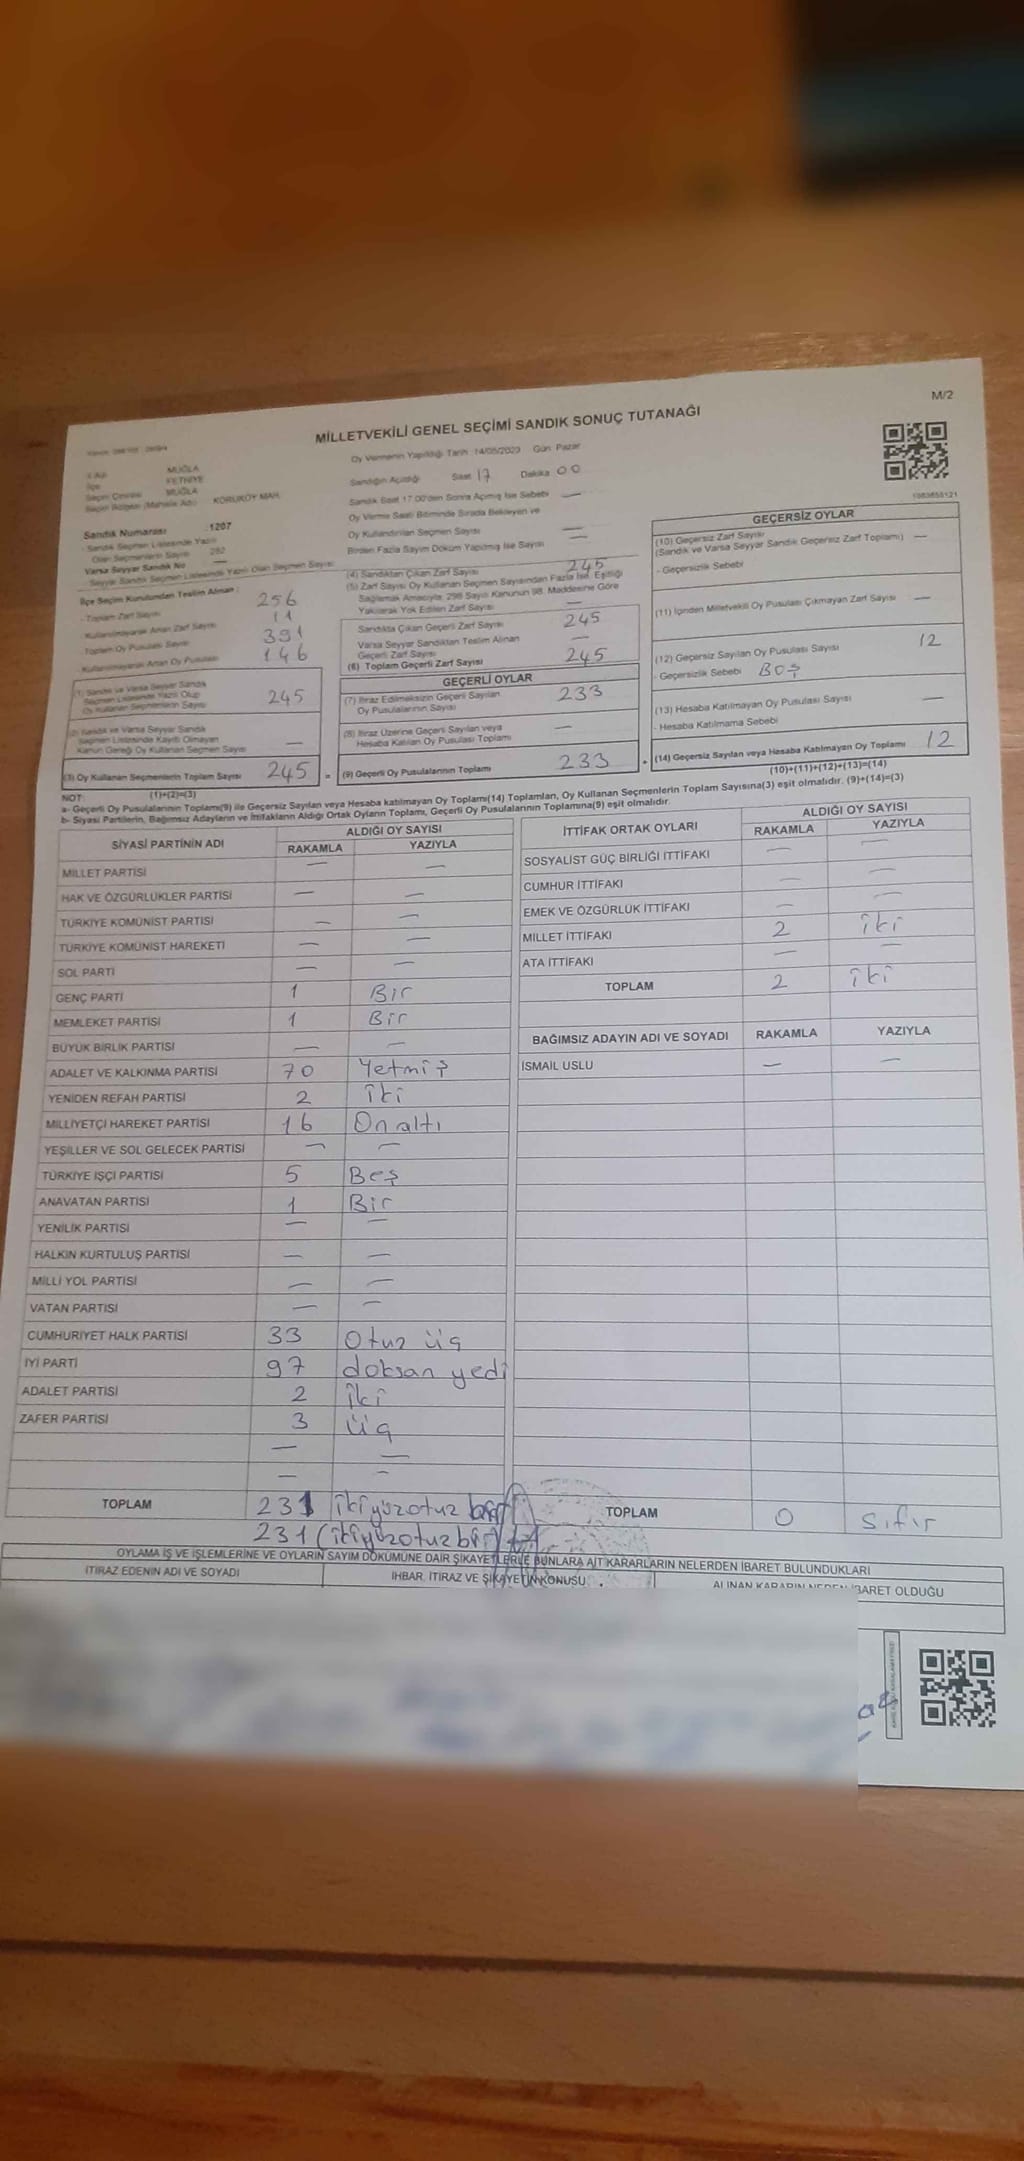 M/2
MİLLETVEKİLİ GENEL SEÇİMİ SANDIK SONUÇ TUTANAĞI
İli MUĞLA
İlçe FETHİYE
Seçim Çevresi MUĞLA
Seçim Bölgesi (Mahalle Adı) KORUKÖY MAH.
Sandık Numarası :1207
Sandık Seçmen Listesinde Yazılı
Olan Seçmenlerin Sayısı 282
Varsa Seyyar Sandık No —
Seyyar Sandık Seçmen Listesinde Yazılı Olan Seçmen Sayısı
İlçe Seçim Kurulundan Teslim Alınan :
- Toplam Zarf Sayısı 256
Kullanılmayarak Artan Zarf Sayısı 11
Toplam Oy Pusulası Sayısı 391
- Kullanılmayarak Artan Oy Pusulası 146
(1) Sandık ve Varsa Seyyar Sandık
Seçmen Listesinde Yazılı Olup
Oy Kullanan Seçmenlerin Sayısı 245
(2) Sandık ve Varsa Seyyar Sandık
Seçmen Listesinde Kayıtlı Olmayan
Kanun Gereği Oy Kullanan Seçmen Sayısı —
(3) Oy Kullanan Seçmenlerin Toplam Sayısı 245
(1)+(2)=(3)
Oy Vermenin Yapıldığı Tarih :14/05/2023 Gün: Pazar
Sandığın Açıldığı Saat 17 Dakika 00
Sandık Saat 17:00'den Sonra Açılmış İse Sebebi —
Oy Verme Saati Bitiminde Sırada Bekleyen ve
Oy Kullandırılan Seçmen Sayısı —
Birden Fazla Sayım Döküm Yapılmış İse Sayısı —
(4) Sandıktan Çıkan Zarf Sayısı 245
(5) Zarf Sayısı Oy Kullanan Seçmen Sayısından Fazla İse, Eşitliği
Sağlamak Amacıyla, 298 Sayılı Kanunun 98. Maddesine Göre
Yakılarak Yok Edilen Zarf Sayısı —
Sandıkta Çıkan Geçerli Zarf Sayısı 245
Varsa Seyyar Sandıktan Teslim Alınan
Geçerli Zarf Sayısı —
(6) Toplam Geçerli Zarf Sayısı 245
GEÇERLİ OYLAR
(7) İtiraz Edilmeksizin Geçerli Sayılan
Oy Pusulalarının Sayısı 233
(8) İtiraz Üzerine Geçerli Sayılan veya
Hesaba Katılan Oy Pusulası Toplamı —
= (9) Geçerli Oy Pusulalarının Toplamı 233
1083855121
GEÇERSİZ OYLAR
(10) Geçersiz Zarf Sayısı
(Sandık ve Varsa Seyyar Sandık Geçersiz Zarf Toplamı) —
- Geçersizlik Sebebi
(11) İçinden Milletvekili Oy Pusulası Çıkmayan Zarf Sayısı —
(12) Geçersiz Sayılan Oy Pusulası Sayısı 12
- Geçersizlik Sebebi BOŞ
(13) Hesaba Katılmayan Oy Pusulası Sayısı —
- Hesaba Katılmama Sebebi
+ (14) Geçersiz Sayılan veya Hesaba Katılmayan Oy Toplamı 12
(10)+(11)+(12)+(13)=(14)
NOT:
a- Geçerli Oy Pusulalarının Toplamı(9) ile Geçersiz Sayılan veya Hesaba katılmayan Oy Toplamı(14) Toplamları, Oy Kullanan Seçmenlerin Toplam Sayısına(3) eşit olmalıdır. (9)+(14)=(3)
b- Siyasi Partilerin, Bağımsız Adayların ve İttifakların Aldığı Ortak Oyların Toplamı, Geçerli Oy Pusulalarının Toplamına(9) eşit olmalıdır.
SİYASİ PARTİNİN ADI ALDIĞI OY SAYISI
RAKAMLA YAZIYLA
MİLLET PARTİSİ — —
HAK VE ÖZGÜRLÜKLER PARTİSİ — —
TÜRKİYE KOMÜNİST PARTİSİ — —
TÜRKİYE KOMÜNİST HAREKETİ — —
SOL PARTİ — —
GENÇ PARTİ 1 Bir
MEMLEKET PARTİSİ 1 Bir
BÜYÜK BİRLİK PARTİSİ — —
ADALET VE KALKINMA PARTİSİ 70 Yetmiş
YENİDEN REFAH PARTİSİ 2 İki
MİLLİYETÇİ HAREKET PARTİSİ 16 Onaltı
YEŞİLLER VE SOL GELECEK PARTİSİ — —
TÜRKİYE İŞÇİ PARTİSİ 5 Beş
ANAVATAN PARTİSİ 1 Bir
YENİLİK PARTİSİ — —
HALKIN KURTULUŞ PARTİSİ — —
MİLLİ YOL PARTİSİ — —
VATAN PARTİSİ — —
CUMHURİYET HALK PARTİSİ 33 Otuz üç
İYİ PARTİ 97 doksan yedi
ADALET PARTİSİ 2 İki
ZAFER PARTİSİ 3 Üç
— —
— —
TOPLAM 231 ikiyüzotuz bir
231 (ikiyüzotuzbir)
İTTİFAK ORTAK OYLARI ALDIĞI OY SAYISI
RAKAMLA YAZIYLA
SOSYALİST GÜÇ BİRLİĞİ İTTİFAKI — —
CUMHUR İTTİFAKI — —
EMEK VE ÖZGÜRLÜK İTTİFAKI — —
MİLLET İTTİFAKI 2 İki
ATA İTTİFAKI — —
TOPLAM 2 İki
BAĞIMSIZ ADAYIN ADI VE SOYADI RAKAMLA YAZIYLA
İSMAİL USLU — —
TOPLAM 0 Sıfır
OYLAMA İŞ VE İŞLEMLERİNE VE OYLARIN SAYIM DÖKÜMÜNE DAİR ŞİKAYETLERLE BUNLARA AİT KARARLARIN NELERDEN İBARET BULUNDUKLARI
İTİRAZ EDENİN ADI VE SOYADI İHBAR, İTİRAZ VE ŞİKAYETİN KONUSU ALINAN KARARIN NEDEN İBARET OLDUĞU